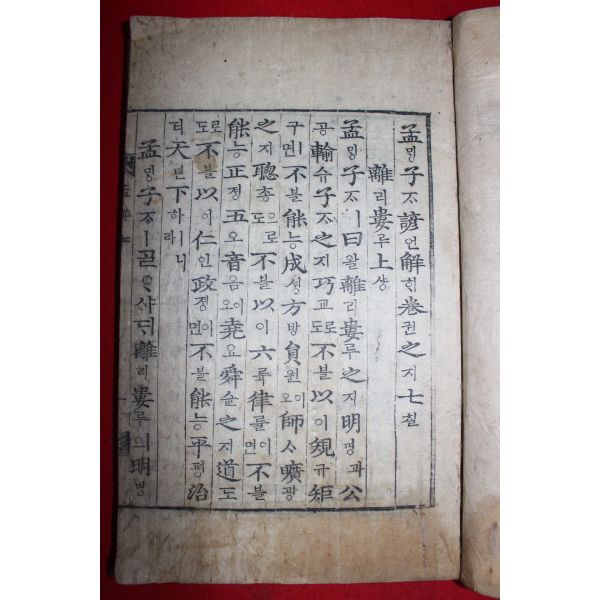 孟ᄆᆡᆼ子ᄌᆞ諺언解ᄒᆡ卷권之지七칠
離리婁루上샹
孟ᄆᆡᆼ子ᄌᆞㅣ曰왈離리婁루之지明명과公
공輸슈子ᄌᆞ之지巧교도로不불以이規규矩
구면不불能능成셩方방員원이오師ᄉᆞ曠광
之지聰총도으로不불以이六륙律률이면不불
能능正졍五오音음이오堯요舜슌之지道도
도로不불以이仁인政졍이면不불能능平평治
티天텬下하ㅣ니라
孟ᄆᆡᆼ子ᄌᆞㅣᄀᆞᆯᄋᆞ샤ᄃᆡ離리婁루의明명